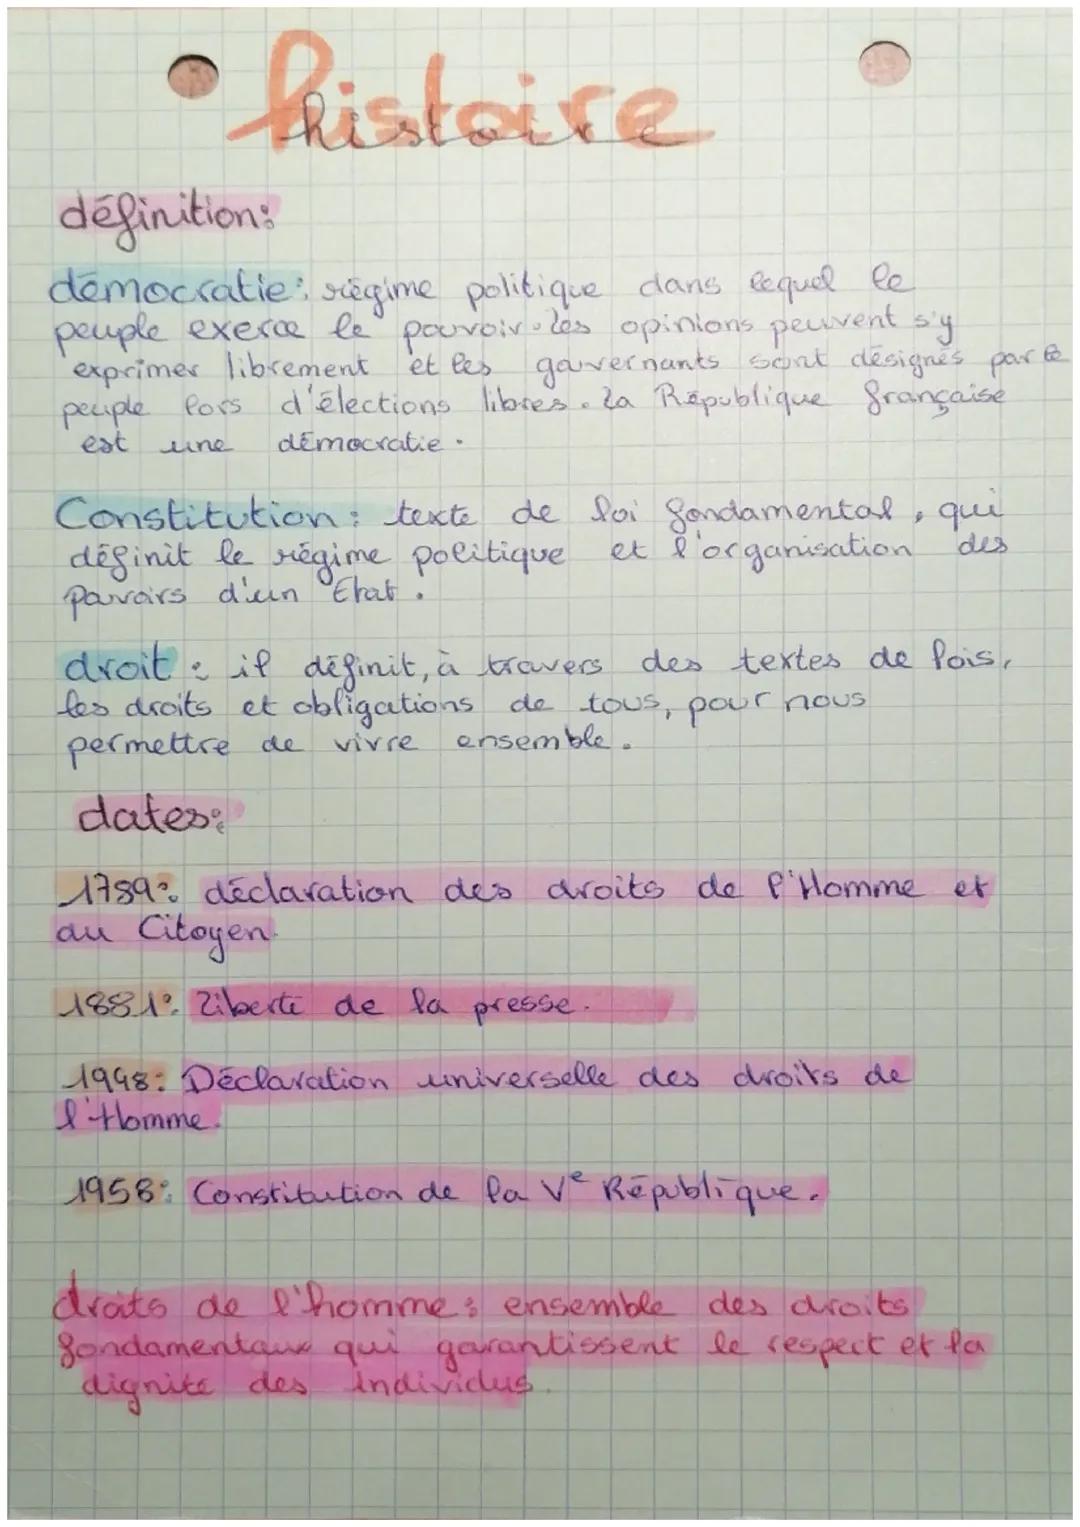 histoire
histoire
définition:
démocratie: régime politique dans lequel le
peuple exerce le pouvoir. les opinions peuvent s'y
exprimer librement et les gouvernants sont désignés par le
peuple lors d'élections libres. La République française
est une démocratie.
Constitution: texte de loi fondamental, qui
définit le régime politique et l'organisation des
pouvoirs d'un État.
droit: il définit, à travers des textes de lois,
les droits et obligations de tous, pour nous
permettre de vivre ensemble.
dates:
1789: déclaration des droits de l'Homme et
du Citoyen.
1881: Liberté de la presse.
1948: Déclaration universelle des droits de
l'Homme.
1958: Constitution de la Ve République.
droits de l'homme: ensemble des droits
fondamentaux qui garantissent le respect et la
dignité des individus.